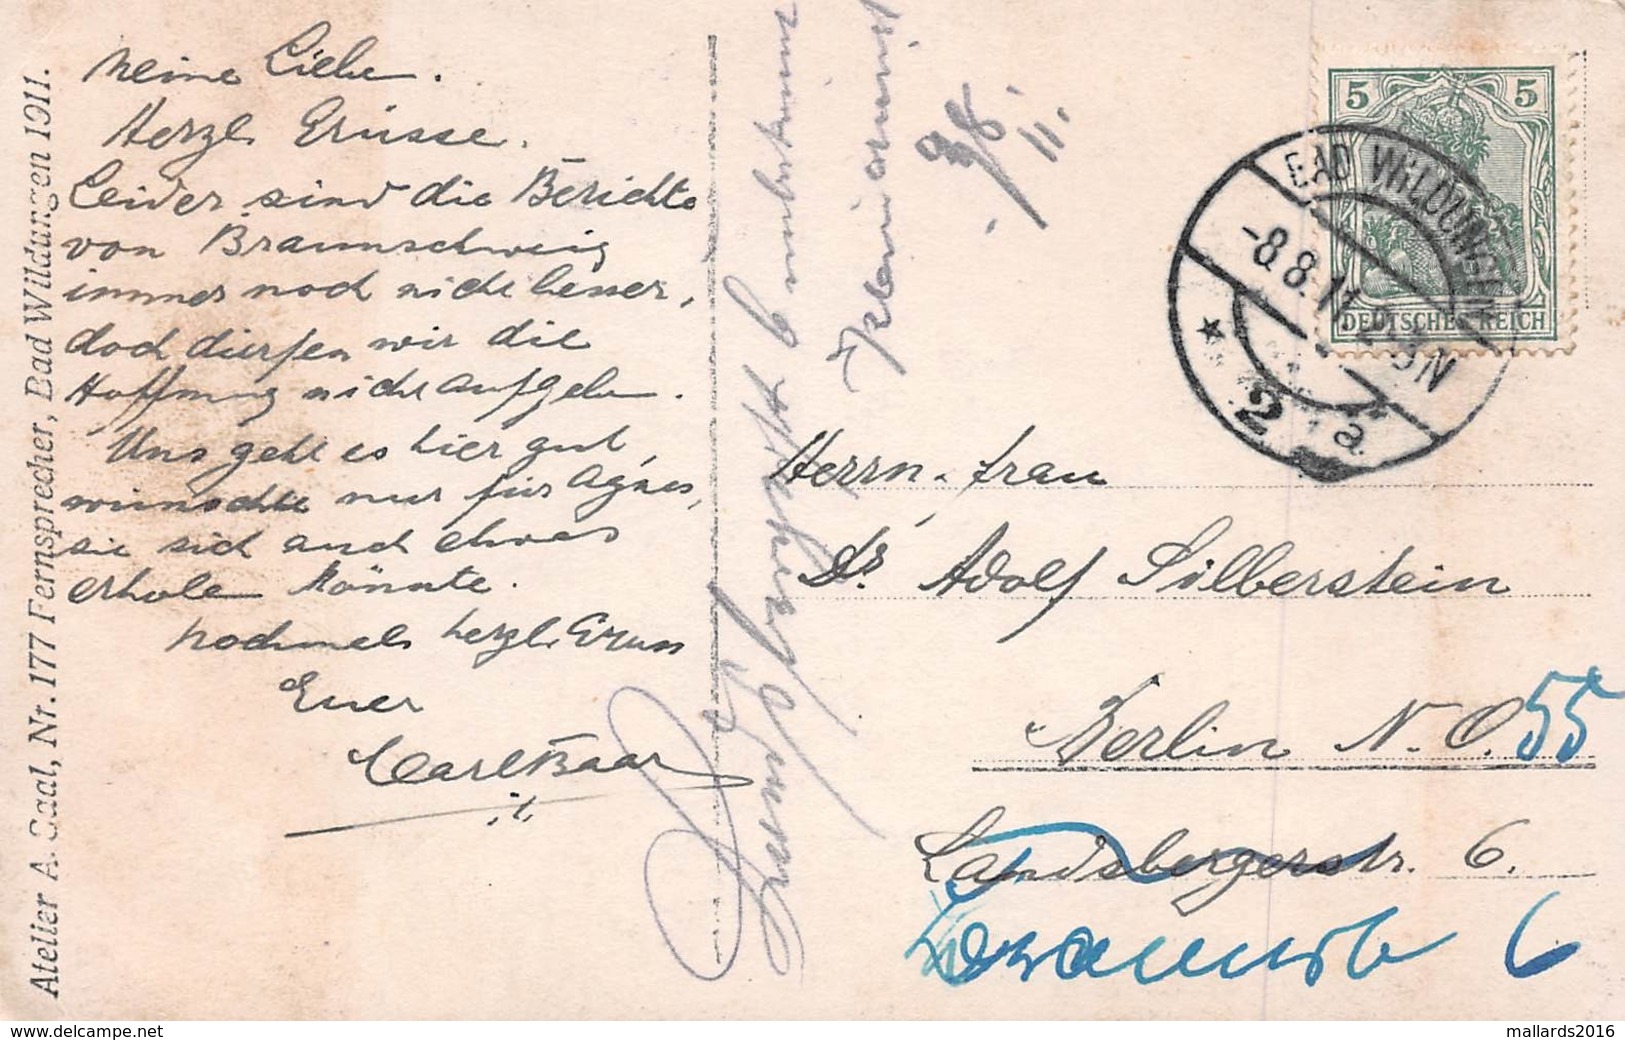 Meine Liebe.
Herzl Grüsse.
Leider sind die Berichte
von Braunschweig
immer noch nicht besser,
doch dürfen wir die
Hoffnung nicht aufgeben.
Uns geht es hier gut,
wünschte nur für Agnes,
sie sich auch etwas
erholen könnte.
Nochmals herzl. Gruss
Euer
Carl Baar
Atelier A. Saal, Nr. 177 Fernsprecher, Bad Wildungen 1911.
9/8
11.
5 5
DEUTSCHES REICH
BAD WILDUNGEN
-8.8.11. 2-3N
* 2 a
Herrn. Frau
Dr. Adolf Silberstein
Berlin N.O. 55
Landsbergerstr. 6.
6
www.delcampe.net
mallards2016